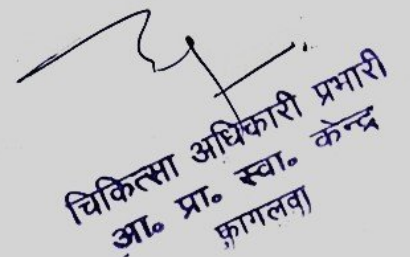 चिकित्सा अधिकारी प्रभारी
आ॰ प्रा॰ स्वा॰ केन्द्र
कागलवा